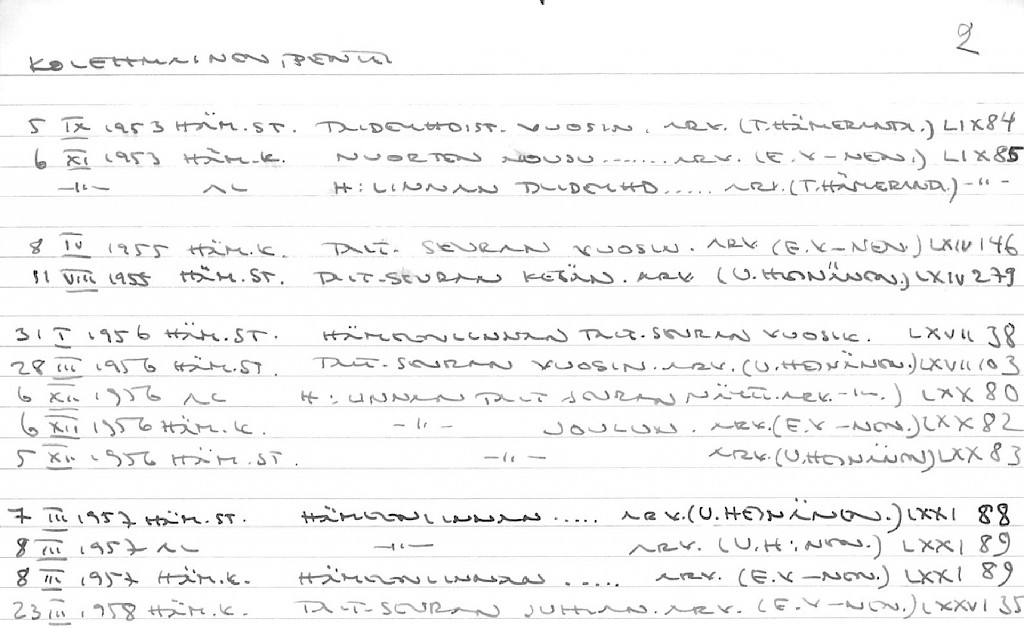 2
KOLEHMAINEN, PENTTI
5 IX 1953 HÄM.ST. TAIDEYHDIST. VUOSIN. ARV. (T.HÄMERANTA.) LIX 84
6 XI 1953 HÄM.K. NUORTEN NOUSU ....... ARV. (E.V-NEN.) LIX 85
-"- AL H:LINNAN TAIDEYHD..... ARV.(T.HÄMERANTA.) -"-
8 IV 1955 HÄM.K. TAIT. SEURAN VUOSIN. ARV. (E.V-NEN.) LXIV 146
11 VIII 1955 HÄM.ST. TAIT-SEURAN KESÄN. ARV. (U.HEINÄNEN.) LXIV 279
31 I 1956 HÄM.ST. HÄMEENLINNAN TAIT-SEURAN VUOSIK. LXVII 38
28 III 1956 HÄM.ST. TAIT-SEURAN VUOSIN. ARV. (U.HEINÄNEN.) LXVII 103
6 XII 1956 AL H:LINNAN TAIT SEURAN NÄYTT. ARV. -"-.) LXX 80
6 XII 1956 HÄM.K. -"- JOULUN. ARV.(E.V-NEN.) LXX 82
5 XII 1956 HÄM.ST. -"- ARV.(U.HEINÄNEN) LXX 83
7 III 1957 HÄM.ST. HÄMEENLINNAN ..... ARV.(U.HEINÄNEN.) LXXI 88
8 III 1957 AL -"- ARV. (U.H:NEN.) LXXI 89
8 III 1957 HÄM.K. HÄMEENLINNAN ..... ARV. (E.V-NEN.) LXXI 89
23 III 1958 HÄM.K. TAIT-SEURAN JUHLAN. ARV. (E.V-NEN.) LXXVI 35